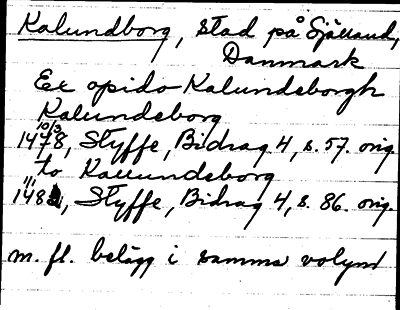 Kalundborg, stad på Själland,
Danmark
Ex opido Kalundsborgh
Kalundsborg
10/3
1478, Styffe, Bidrag 4, s. 57. orig.
to Kallundsborg
1/11
148, Styffe, Bidrag 4, s. 86. orig.
m. fl. belägg i samma volym